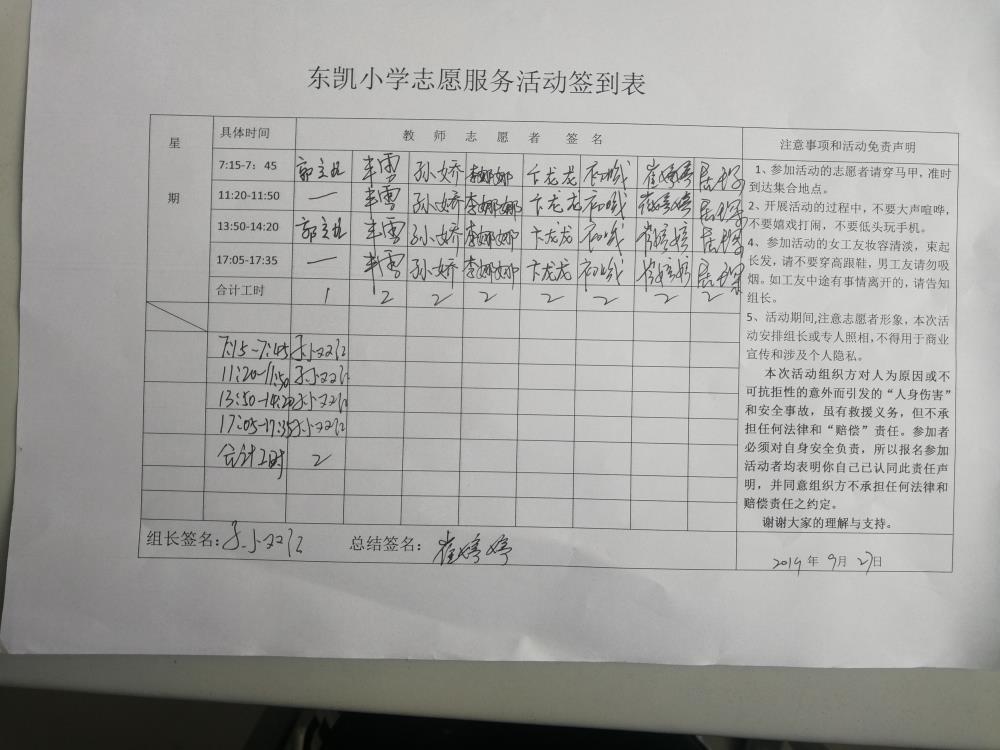 东凯小学志愿服务活动签到表
星期 具体时间 教师志愿者签名 注意事项和活动免责声明
7:15-7：45 孙娇 李娜娜 卞龙龙 崔婷婷
11:20-11:50 — 孙娇 李娜娜 卞龙龙 崔婷婷
13:50-14:20 孙娇 李娜娜 卞龙龙 崔婷婷
17:05-17:35 — 孙娇 李娜娜 卞龙龙 崔婷婷
合计工时 1 2 2 2 2 2 2 2
7:15-7:45
11:20-11:50
13:50-14:20
17:05-17:35
合计工时 2
1、参加活动的志愿者请穿马甲，准时
到达集合地点。
2、开展活动的过程中，不要大声喧哗，
不要嬉戏打闹，不要低头玩手机。
4、参加活动的女工友妆容清淡，束起
长发，请不要穿高跟鞋，男工友请勿吸
烟。如工友中途有事情离开的，请告知
组长。
5、活动期间,注意志愿者形象，本次活
动安排组长或专人照相，不得用于商业
宣传和涉及个人隐私。
本次活动组织方对人为原因或不
可抗拒性的意外而引发的“人身伤害”
和安全事故，虽有救援义务，但不承
担任何法律和“赔偿”责任。参加者
必须对自身安全负责，所以报名参加
活动者均表明你自己已认同此责任声
明，并同意组织方不承担任何法律和
赔偿责任之约定。
谢谢大家的理解与支持。
组长签名： 总结签名：崔婷婷
2019年9月27日